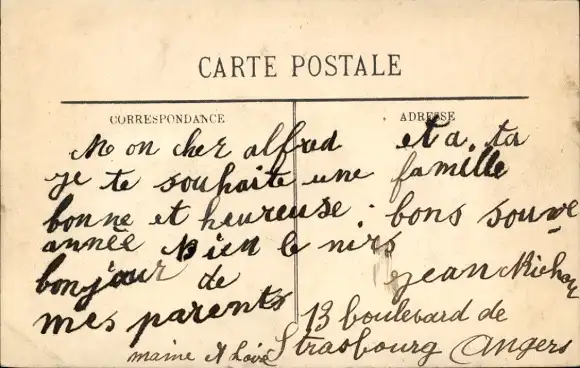 CARTE POSTALE
CORRESPONDANCE
ADRESSE
Mon cher alfred et a ta
je te souhaite une famille
bonne et heureuse . bons souve
année bien le nirs
bonjour de jean Richar
mes parents 13 boulevard de
maine et loire Strasbourg Angers